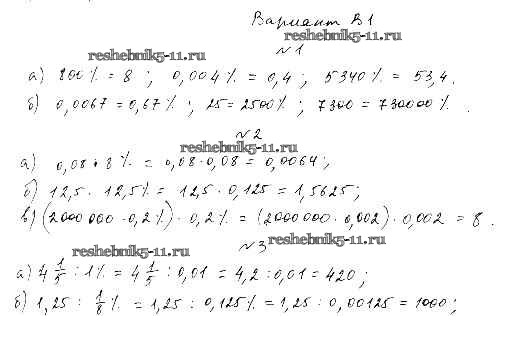 Вариант В1
reshebnik5-11.ru
reshebnik5-11.ru
№1
а) 800% = 8 ; 0,004% = 0,4 ; 5340% = 53,4.
б) 0,0067 = 0,67% ; 25 = 2500% ; 7300 = 730000% .
№2
reshebnik5-11.ru
а) 0,08 · 8% = 0,08·0,08 = 0,0064;
б) 12,5 · 12,5% = 12,5 · 0,125 = 1,5625;
в) (2000 000 · 0,2%) · 0,2% = (2000 000 · 0,002) · 0,002 = 8 .
№3
reshebnik5-11.ru
reshebnik5-11.ru
а) 4 1/5 : 1% = 4 1/5 : 0,01 = 4,2 : 0,01 = 420 ;
б) 1,25 : 1/8 % = 1,25 : 0,125% = 1,25 : 0,00125 = 1000;